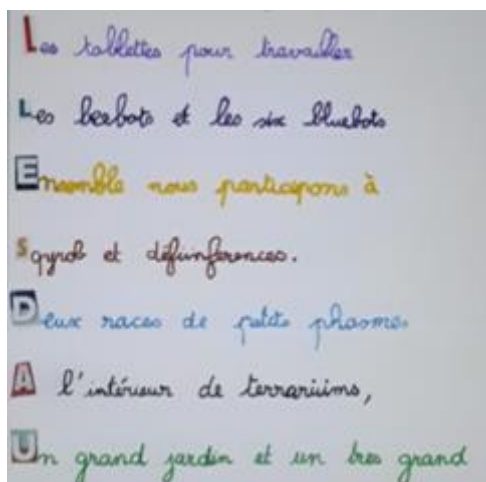 Les tablettes pour travailler
Les beebots et les six bluebots
Ensemble nous participons à
Sgyrob et défiinférences.
Deux races de petits phasmes
A l'intérieur de terrariums,
Un grand jardin et un très grand